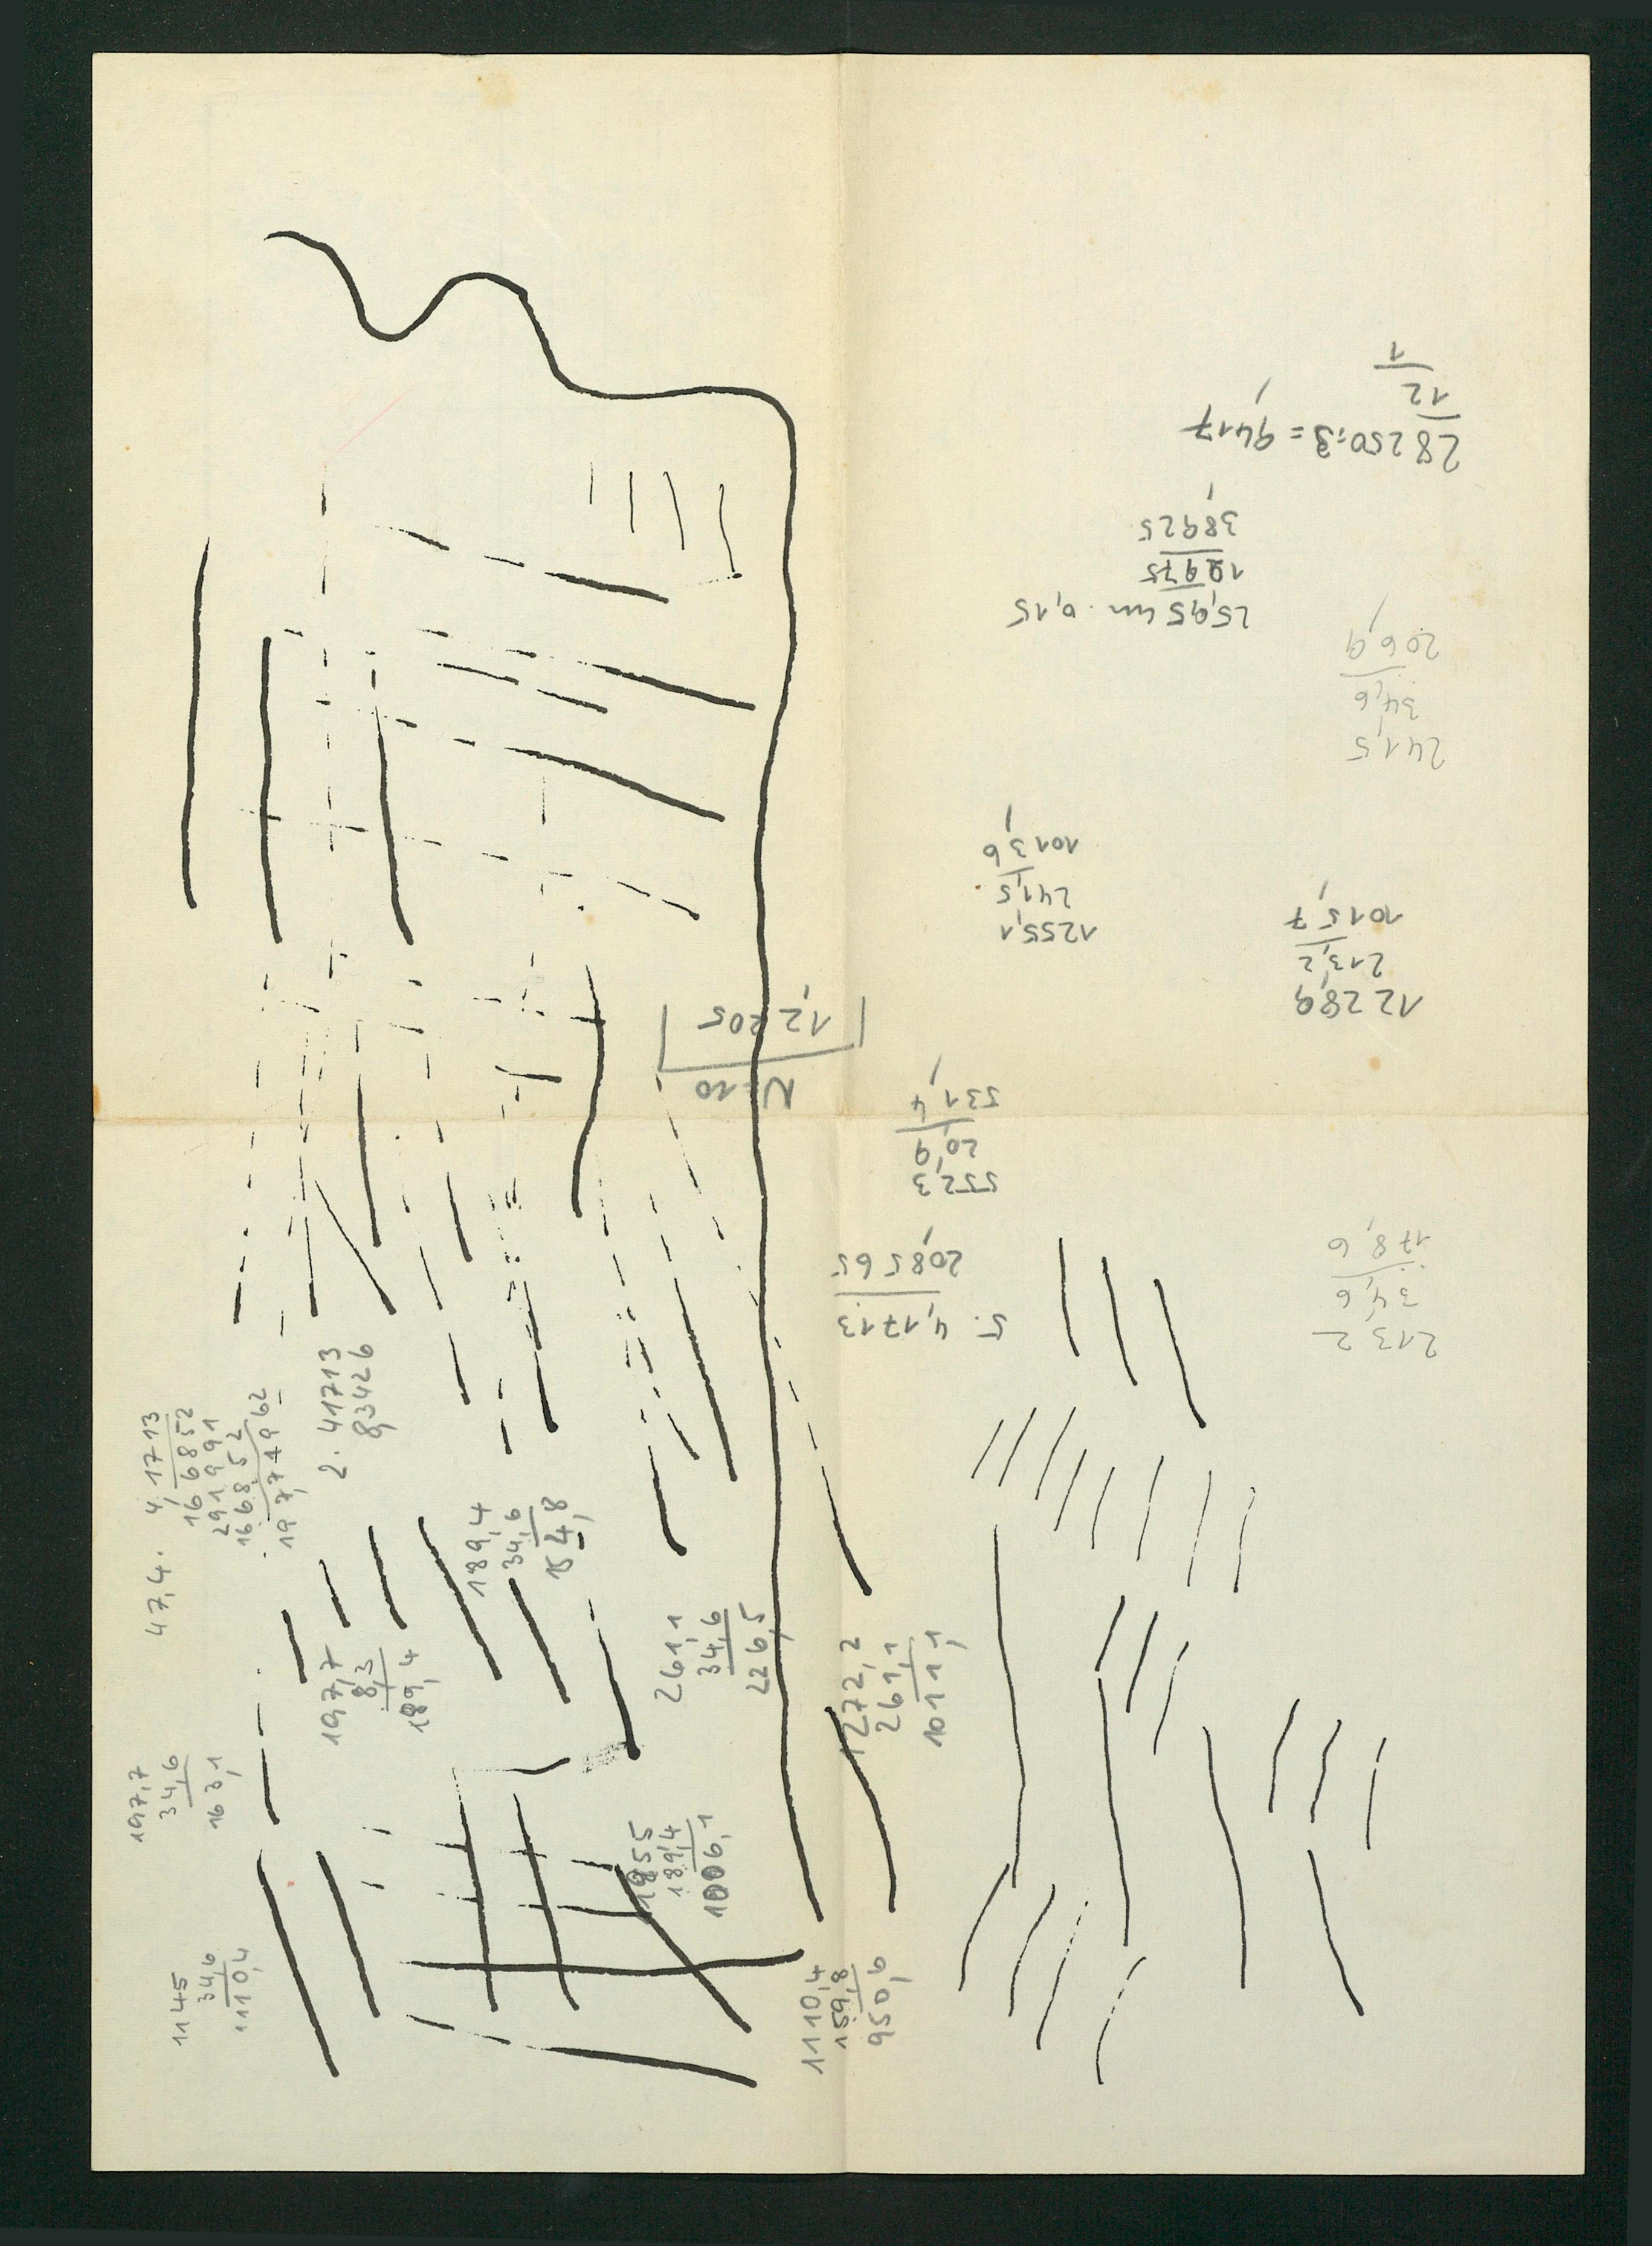 28250:3 = 9,417
12
1
25,95 m · 0,15
12975
3,8925
241,5
34,6
206,9
1255,1
241,5
1013,6
1228,9
213,2
1015,7
12,205
552,3
20,9
531,4
5 · 4,1713
20,8565
213,2
34,6
178,6
47,4 · 4,1713
166852
291991
166852
2 · 41713
83426
189,4
34,6
154,8
197,7
8,3
189,4
261,1
34,6
226,5
1272,2
261,1
1011,1
197,7
34,6
163,1
189,4
1006,1
1145
34,6
1110,4
1110,4
159,8
950,6